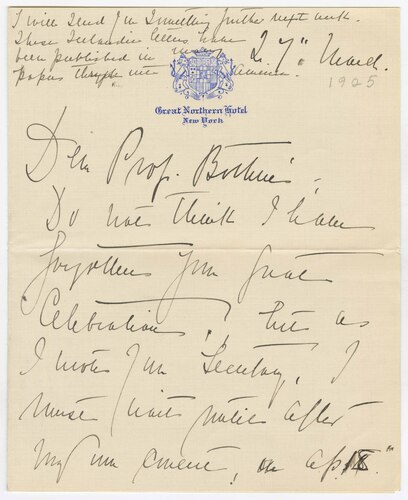 I will send you something further next week.
These Icelandic letters have
been published in
papers through out America.
27" March.
1925
Great Northern Hotel
New York
Dear Prof. Bothne,
Do not think I have
forgotten your great
Celebration, but as
I wrote your Secretary, I
must wait until after
my own concert, on Ap.